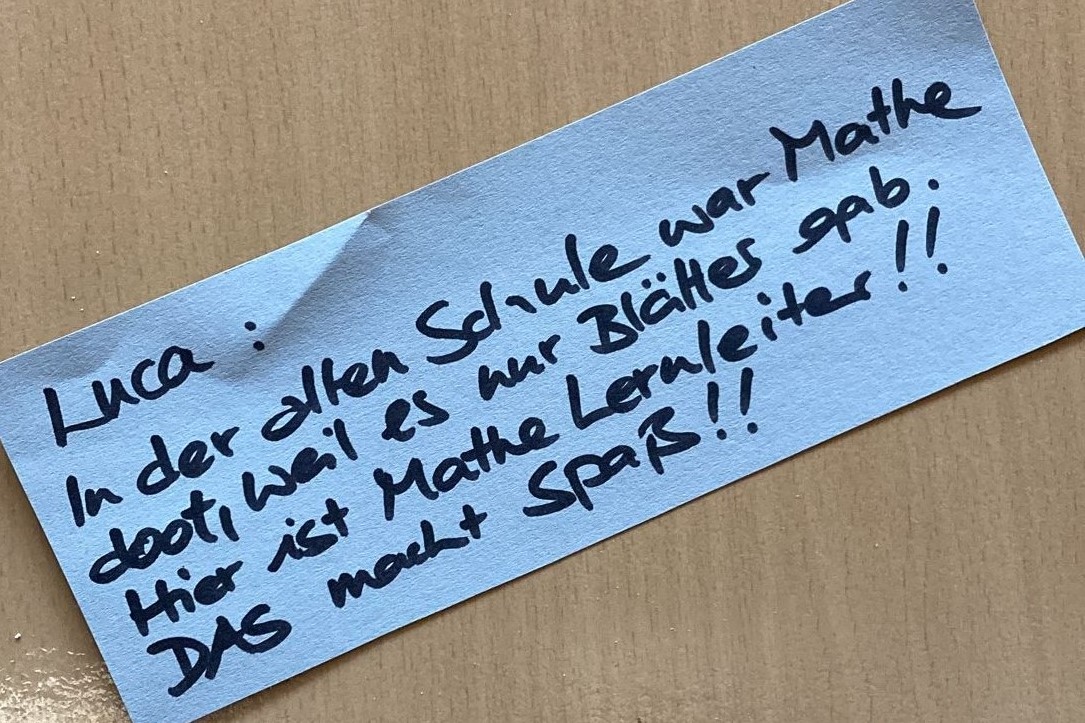 Luca :
In der alten Schule war Mathe
doof, weil es nur Blätter gab.
Hier ist Mathe Lernleiter!!
DAS macht Spaß!!